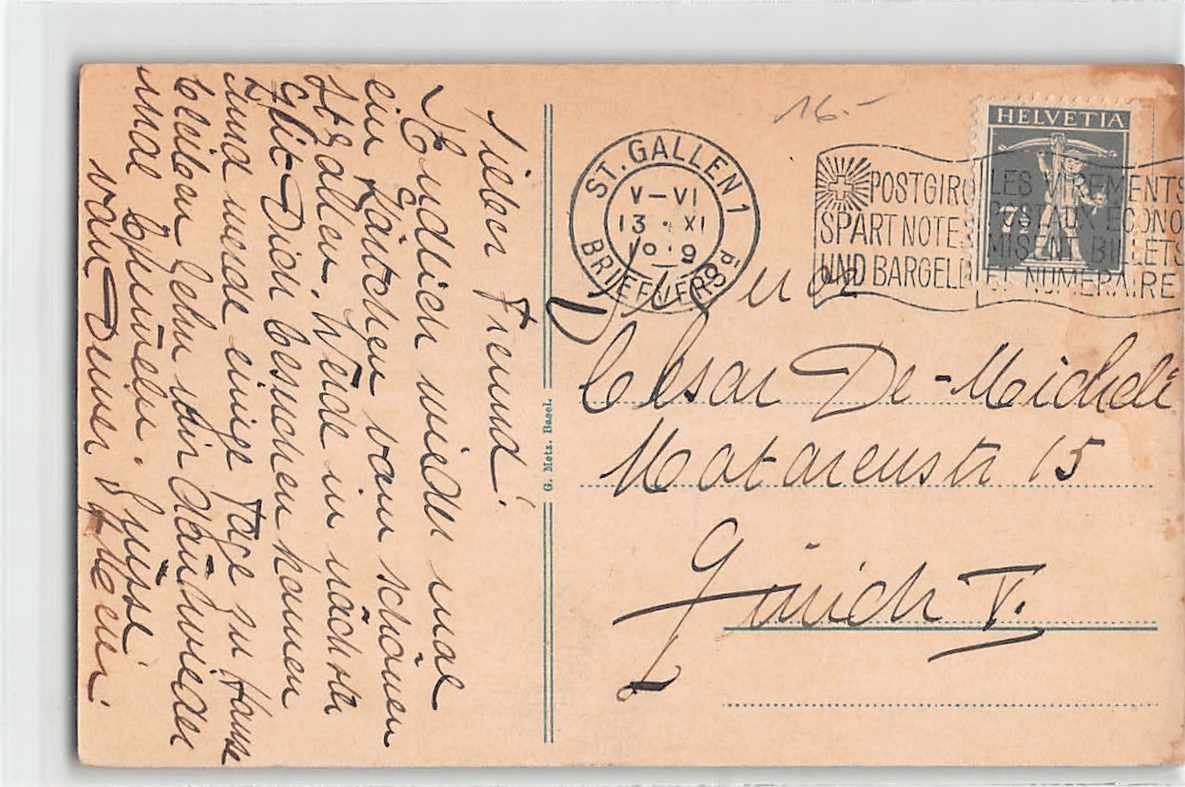 Lieber Freund!
Endlich wieder mal
ein Kärtchen vom schönen
St Gallen. Werde in nächster
Zeit Dich besuchen kommen
und werde einige Tage zu Hause
bleiben. Gehn wir dann wieder
mal
von Deiner
16.-
ST. GALLEN 1
V-VI
13. XI
BRIEFVERSd
POSTGIRO
SPART NOTEN
UND BARGELD
LES VIREMENTS
POSTAUX ECONO
MISENT BILLETS
ET NUMERAIRE
HELVETIA
7½
G. Metz. Basel.
Cesar De-Micheli
Zürich V.